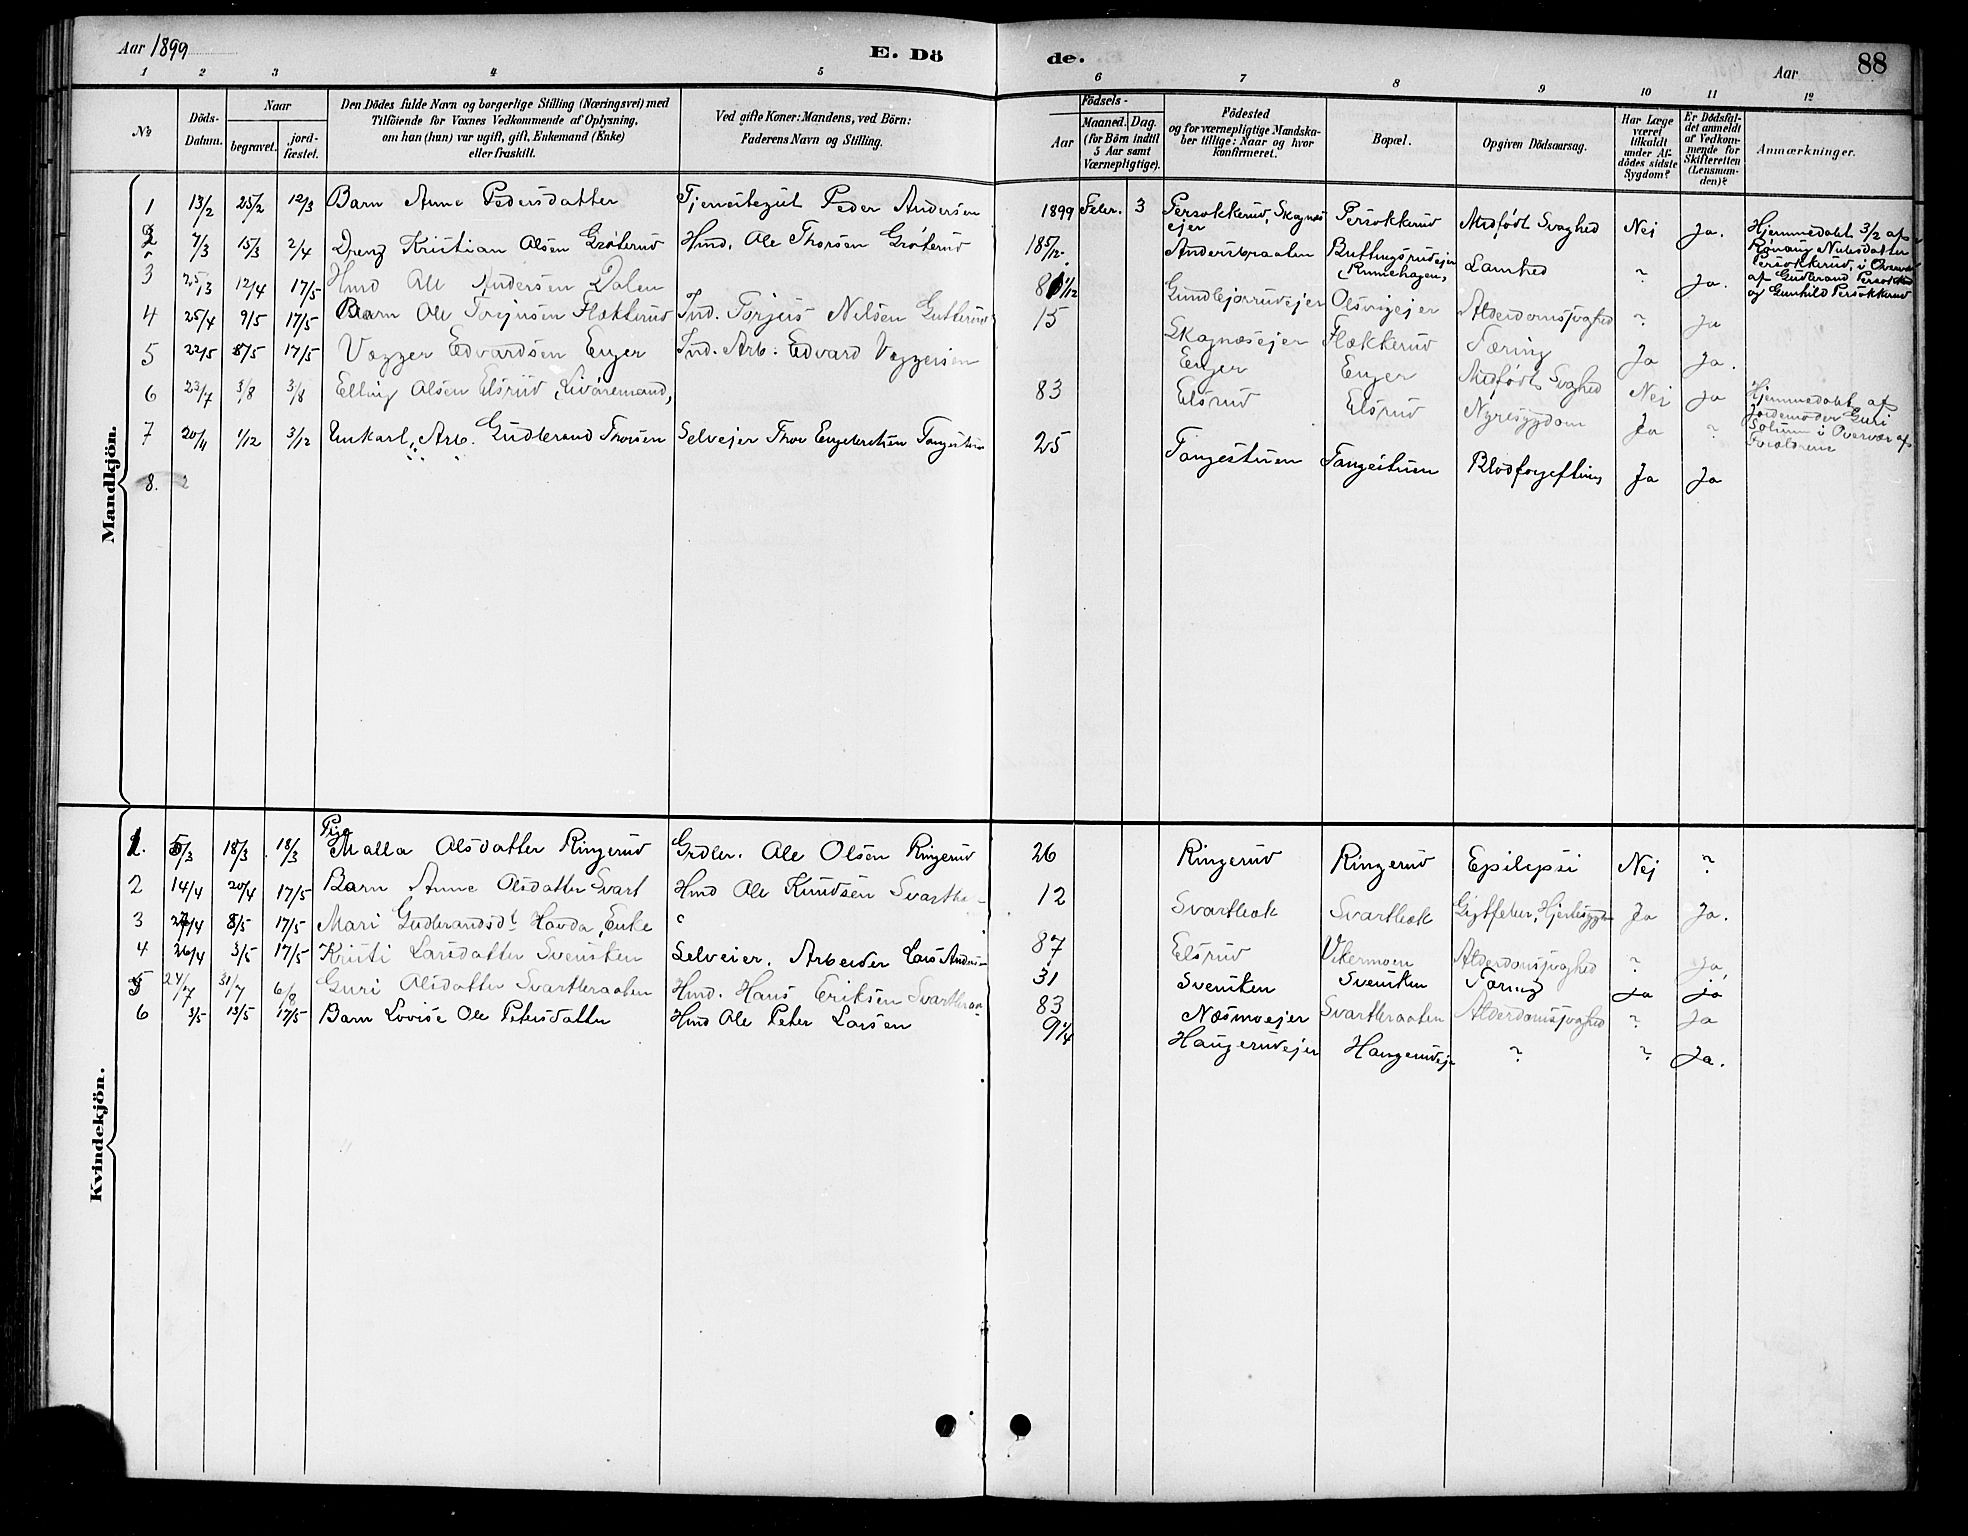 Aar 1899 E. Dö de. Aar 88
1 2 3 4 5 6 7 8 9 10 11 12
No
Döds-Datum.
Naar
begravet.
jord-fæstet.
Den Dödes fulde Navn og borgerlige Stilling (Næringsvei) med Tilföiende for Voxnes Vedkommende af Oplysning, om han (hun) var ugift, gift, Enkemand (Enke) eller fraskilt.
Ved gifte Koner: Mandens, ved Börn: Faderens Navn og Stilling.
Födsels-
Aar
Maaned. Dag.
(for Börn indtil 5 Aar samt Værnepligtige).
Födested og for værnepligtige Mandskaber tillige: Naar og hvor konfirmeret.
Bopæl.
Opgiven Dödsaarsag.
Har Læge været tilkaldt under Afdödes sidste Sygdom?
Er Dödsfaldet anmeldt af Vedkommende for Skifteretten (Lensmanden)?
Anmærkninger.
Mandkjön.
1 13/2 25/2 12/3 Barn Anne Pedersdatter Tjenestegut Peder Andersen 1899 Febr. 3 Persokkerud, Skagnæsejer Persokkerud Medfödt Svaghed Nej Ja. Hjemmedöbt 3/2 af Rønnaug Nilsdatter Persokkerud, i Overvær af Gudbrand Persokkerud og Gunhild Persokkerud
2 7/3 15/3 2/4 Dreng Kristian Olsen Grøterud Hmd. Ole Thorsen Grøterud 185/12 Andersbraaten Buttingsrudejer Lamhed ? Ja.
3 25/3 12/4 17/5 Hmd Ole Andersen Dalen 81/12 Gundbjørrudejer Olsvigejer Alderdomssvaghed ? Ja
4 25/4 9/5 17/5 Barn Ole Torjusen Flækkerud Ind. Torjus Nilsen Gutterud 15 Skagnæsejer Flækkerud Tæring Ja Ja.
5 22/5 8/5 17/5 Vegger Edvardsen Enger Ind. Arb: Edvard Veggersen Enger Enger Medfödt Svaghed Nej Ja Hjemmedøbt af Jordemoder Guri Solum i Overvær af Forældrene
6 23/7 3/8 3/8 Elling Olsen Elsrud, Livöremand, 83 Elsrud Elsrud Nyresygdom Ja ?
7 20/11 1/12 3/12 Unkarl, Arb. Gudbrand Thorsen Selvejer Thor Engebretsen Tangestuen 25 Tangestuen Tangestuen Blodforgiftning Ja Ja
8.
Kvindekjön.
1. 5/3 18/3 18/3 Pige Malla Olsdatter Ringerud Grdbr. Ole Olsen Ringerud 26 Ringerud Ringerud Epilepsi Nej ?
2 14/4 20/4 17/5 Barn Anne Olsdatter Svart Hmd Ole Knudsen Svartbæ 12 Svartbæk Svartbæk Gigtfeber, Hjertesygd Ja Ja.
3 27/4 8/5 17/5 Mari Gudbrandsdt Hovda, Enke 87 Elsrud Vikermoen Alderdomssvaghed ? Ja,
4 26/4 3/5 17/5 Kristi Larsdatter Svensken Selveier. Arbeider Lars Anders 31 Svensken Svensken Tæring Ja Ja
5 24/7 31/7 6/8 Guri Olsdatter Svartbraaten Hmd. Hans Eriksen Svartbraa 83 Næsmoejer Svartbraaten Alderdomssvaghed ? Ja
6 3/5 13/5 17/5 Barn Lovise Ole Petersdatter Hmd Ole Peter Larsen 9 1/4 Haugerudejer Haugerudeje ? ? Ja.